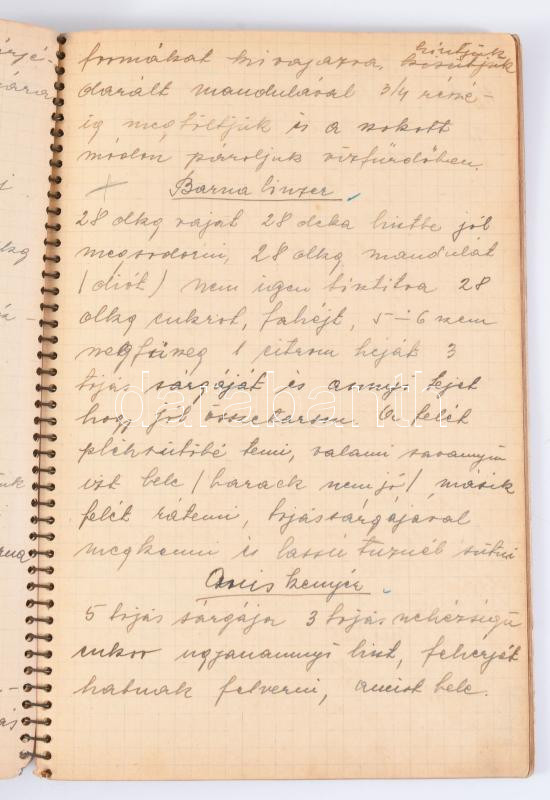 hintjük
formákat kivajazva, kisütjük
darált mandulával 3/4 rész-
ig megtöltjük és a szokott
módon pároljuk vízfürdőben.
Barna linzer
28 dkg vajat 28 deka lisztbe jól
megsodorni, 28 dkg mandulát
/ diót / nem igen tisztítva 28
dkg cukrot, fahéjt, 5-6 szem
szegfűszeg 1 citrom héját 3
tojás sárgáját és annyi tejet
hogy jól összetartson. A felét
plehsütőbe tenni, valami savanyú
ízt bele / barack nem jó / másik
felét rátenni, tojássárgájával
megkenni és lassú tűznél sütni
Ánis kenyér
5 tojás sárgája 3 tojás nehézségű
cukor ugyanannyi liszt, fehérjét
habnak felverni, ánist bele.
darabanth